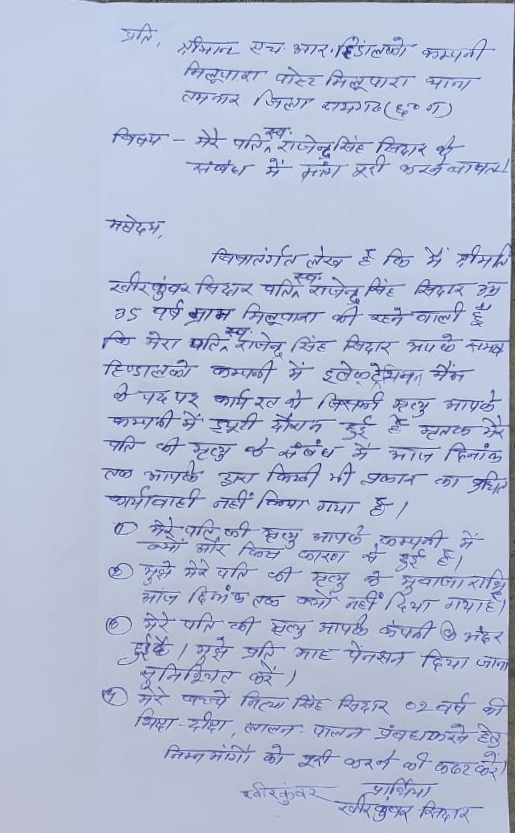 प्रति,
श्रीमान एच. आर. हिंडालको कम्पनी
मिलूपारा पोस्ट मिलूपारा थाना
तमनार जिला रायगढ (छ०ग)
विषय - मेरे पति स्व. राजेन्द्र सिंह सिदार के
संबंध में मांग पूरी करने बाबत।
महोदय,
विषयांतर्गत लेख है कि मैं श्रीमति
खीरकुंवर सिदार पति स्व. राजेन्द्र सिंह सिदार उम्र
35 वर्ष ग्राम मिलूपारा की रहने वाली हूँ
कि मेरा पति स्व. राजेन्द्र सिंह सिदार आपके समक्ष
हिण्डालको कम्पनी में इलेक्ट्रेशियन मैन
के पद पर कार्यरत थे जिसकी मृत्यु आपके
कम्पनी में ड्युटी दौरान हुई है मृतक मेरे
पति की मृत्यु के संबंध में आज दिनांक
तक आपके द्वारा किसी भी प्रकार का उचित
कार्यवाही नहीं किया गया है।
① मेरे पति की मृत्यु आपके कम्पनी में
क्यों और किस कारण से हुई है।
② मुझे मेरे पति की मृत्यु के मुवाजा राशि
आज दिनांक तक क्यों नहीं दिया गया है।
③ मेरे पति की मृत्यु आपके कंपनी के अंदर
हुई है। मुझे प्रति माह पेनसन दिया जाना
सुनिश्चित करें।
④ मेरे बच्चे नित्या सिंह सिदार 02 वर्ष की
शिक्षा-दीक्षा, लालन-पालन प्रंबध करने हेतु
निम्न मांगों को पूरी करने की करें।
खीरकुंवर प्रार्थिया
खीरकुंवर सिदार